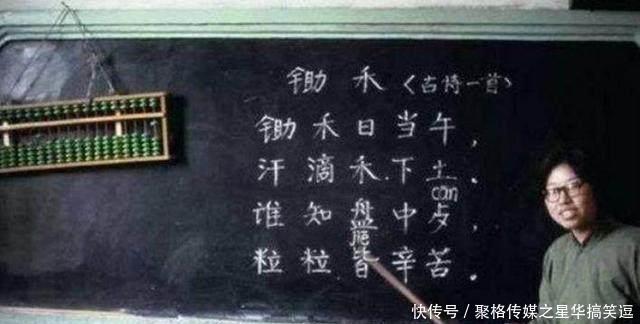 锄禾〈古诗一首〉
锄禾日当午，
汗滴禾下土．
can
谁知盘中歺，
粒粒皆辛苦．
快传号／聚格传媒之星华搞笑逗